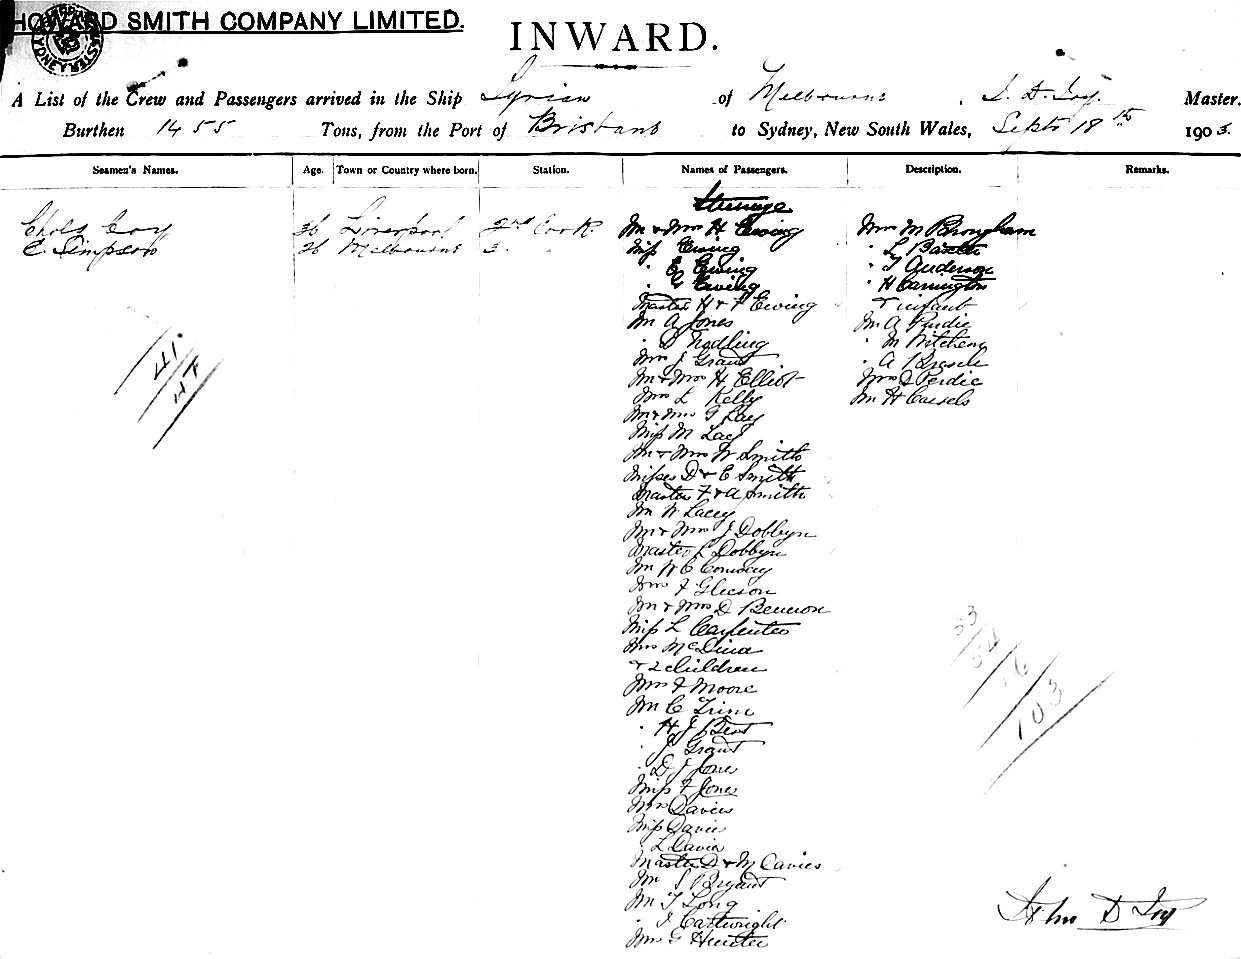 HOWARD SMITH COMPANY LIMITED.
INWARD.
A List of the Crew and Passengers arrived in the Ship Syrian of Melbourne, J. D. Joy. Master.
Burthen 1455 Tons, from the Port of Brisbane to Sydney, New South Wales, Septr 18th 1903.
Seamen's Names. Age. Town or Country where born. Station. Names of Passengers. Description. Remarks.
Chas Coy 36 Liverpool 2nd Cook
E. Simpson 26 Melbourne
41
47
Steerage
Mr & Mrs H Ewing
Miss Ewing
" E Ewing
" G Ewing
Master H & F Ewing
Mr A Jones
" D Nadling
Mrs J Grant
Mr & Mrs H Elliot
Mrs L Kelly
Mr & Mrs G Lay
Miss M Lay
Mr & Mrs W Smith
Misses D & E Smith
Masters F & A Smith
Mr W Lacey
Mr & Mrs J Dobbyn
Master L Dobbyn
Mr W C Conway
Mrs F Gleeson
Mr & Mrs D
Miss L Carpenter
Mrs
& 2 children
Mrs F Moore
Mr C Trim
" H J Best
" J Grant
" D J Jones
Miss F Jones
Mrs Davies
Miss Davies
" L Davies
Master D & M Davies
Mr S Bryant
Mr T Long
" J Cartwright
Mrs G Hunter
Mrs M Brougham
" L Baxter
" J Anderson
" H Carrington
& infant
Mr A Purdie
" M
" A
Mrs D Perdie
Mr H Cassels
33
54
16
103
John D Joy